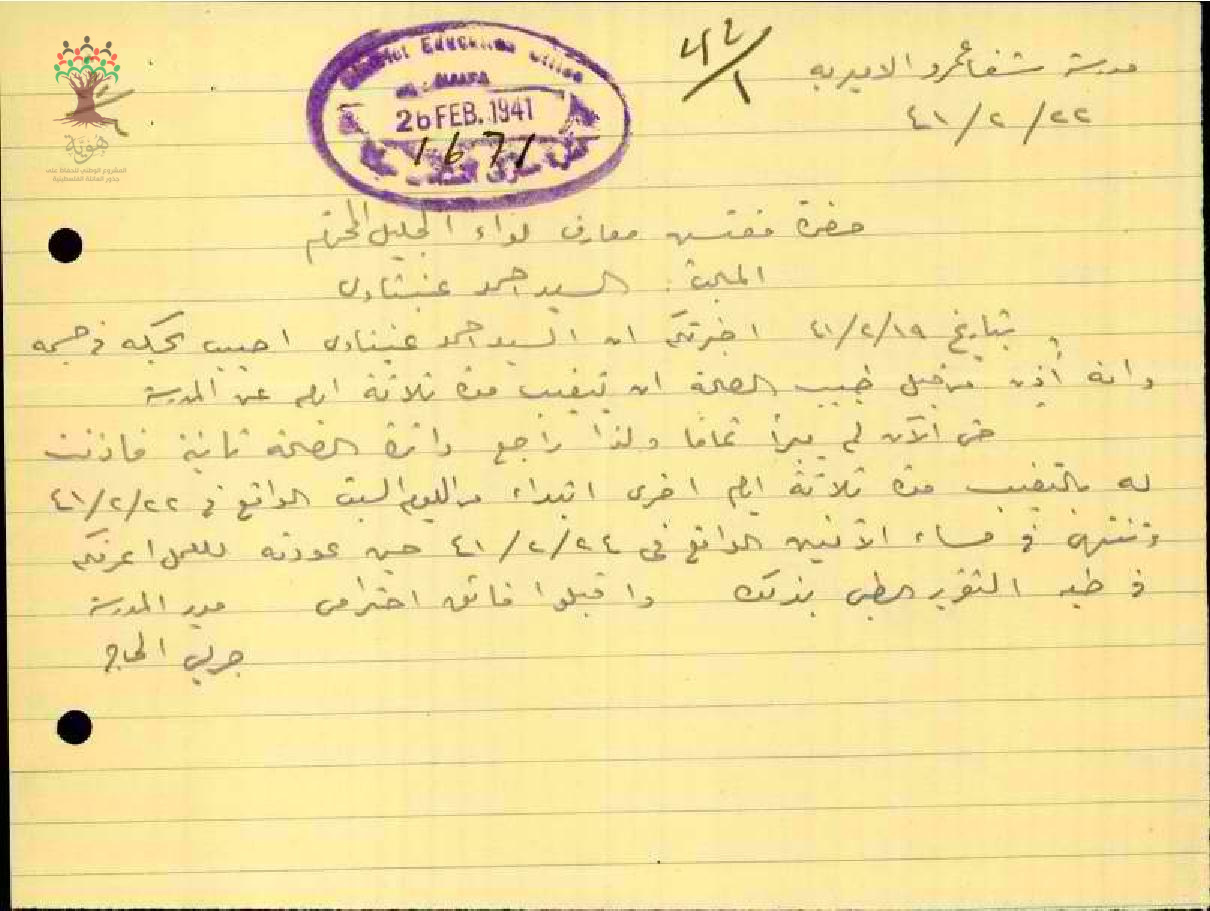 مدرسة شفاعمرو الاميرية
٤١/٢/٢٢
٤٢/١
District Education Office
HAIFA
26 FEB. 1941
1671
هوية
المشروع الوطني للحفاظ على
جذور العائلة الفلسطينية
حضرة مفتش معارف لواء الجليل المحترم
المبحث : السيد احمد عبشاوي
بتاريخ ٤١/٢/١٩ اخبرتكم ان السيد احمد اصيب بحكه في جسمه
وانه أُذن من قبل طبيب الصحة ان يتغيب مدة ثلاثة ايام عن المدرسة
حتى الآن لم يبرأ تماما ولذا راجع دائرة الصحة ثانية فاذنت
له بالتغيب مدة ثلاثة ايام اخرى ابتداء من اليوم السبت الواقع في ٤١/٢/٢٢
وتنتهي في مساء الاثنين الواقع في ٤١/٢/٢٤ حين عودته للعمل اعرفكم
في طيه التقرير الطبي بذلك واقبلوا فائق احترامي مدير المدرسة
الحاج